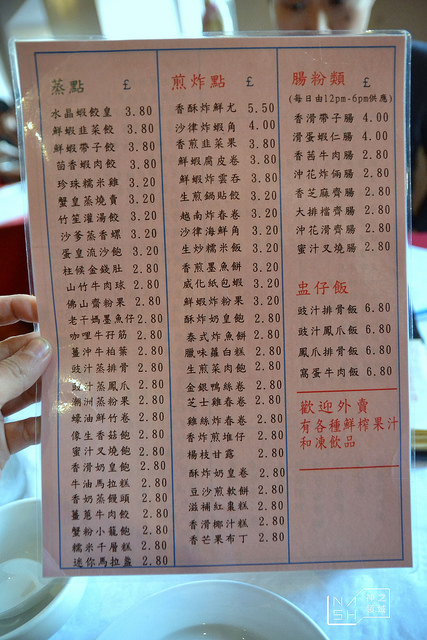 蒸點 £
水晶蝦餃皇 3.80
鮮蝦韭菜餃 3.80
鮮蝦帶子餃 3.80
茴香蝦肉餃 3.20
珍珠糯米雞 3.20
蟹皇蒸燒賣 3.20
竹笙灌湯餃 3.20
沙爹蒸香螺 3.20
蛋皇流沙飽 3.20
柱候金錢肚 2.80
山竹牛肉球 2.80
佛山齋粉果 2.80
老干媽墨魚仔 2.80
咖哩牛孖筋 2.80
薑沖牛柏葉 2.80
豉汁蒸排骨 2.80
豉汁蒸鳳爪 2.80
潮洲蒸粉果 2.80
蠔油鮮竹卷 2.80
像生香菇飽 2.80
蜜汁叉燒飽 2.80
香滑奶皇飽 2.80
牛油馬拉糕 2.80
香奶蒸饅頭 2.80
薑蔥牛肉餃 2.80
蟹粉小籠飽 2.80
糯米千層糕 2.80
迷你馬拉盞 2.80
煎炸點 £
香酥炸鮮尤 5.50
沙律炸蝦角 4.00
香煎韭菜果 3.80
鮮蝦腐皮卷 3.80
鮮蝦炸雲吞 3.80
生煎鍋貼餃 3.20
越南炸春卷 3.20
沙律海鮮角 3.20
生炒糯米飯 3.20
香煎墨魚餅 3.20
咸化紙包蝦 3.20
鮮蝦炸粉果 3.20
酥炸奶皇飽 2.80
泰式炸魚餅 2.80
臘味蘿白糕 2.80
生煎菜肉飽 2.80
金銀鴨絲卷 2.80
芝士雞春卷 2.80
雞絲炸春卷 2.80
香炸煎堆仔 2.80
楊枝甘露 2.80
酥炸奶皇卷 2.80
豆沙煎軟餅 2.80
滋補紅棗糕 2.80
香滑椰汁糕 2.80
香芒果布丁 2.80
腸粉類 £
(每日由12pm-6pm供應)
香滑帶子腸 4.00
滑蛋蝦仁腸 4.00
香茜牛肉腸 2.80
沖花炸倆腸 2.80
香芝麻齊腸 2.80
大排檔齊腸 2.80
沖花滑齊腸 2.80
蜜汁叉燒腸 2.80
盅仔飯
豉汁排骨飯 6.80
豉汁鳳爪飯 6.80
鳳爪排骨飯 6.80
窩蛋牛肉飯 6.80
歡迎外賣
有各種鮮榨果汁
和凍飲品